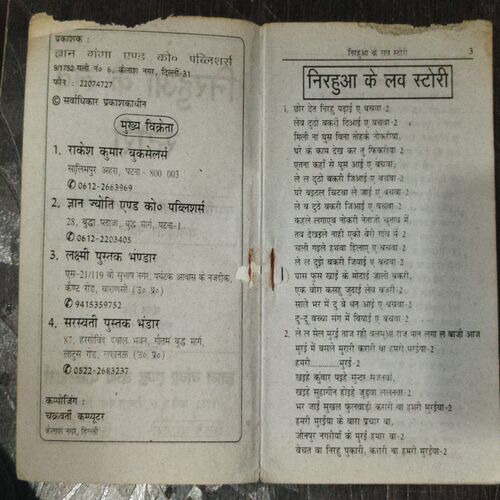 प्रकाशक :
ज्ञान गंगा एण्ड को० पब्लिशर्स
9/1752 गली नं० 6, कैलाश नगर, दिल्ली-31
फोन : 22074727
© सर्वाधिकार प्रकाशकाधीन
मुख्य विक्रेता
1. राकेश कुमार बुकसेलर्स
सालिमपुर अहरा, पटना - 800 003
✆ 0612-2663969
2. ज्ञान ज्योति एण्ड को० पब्लिशर्स
28, बुद्धा प्लाजा, बुद्ध मार्ग, पटना-1
✆ 0612-2203405
3. लक्ष्मी पुस्तक भण्डार
एस-21/119 यो सुभाष नगर, पर्यटक आवास के नजदीक,
कैण्ट रोड, वाराणसी (उ० प्र०)
✆ 9415359752
4. सरस्वती पुस्तक भंडार
87, हरगोविन्द दयाल भवन, गौतम बुद्ध मार्ग,
लाटूस रोड, लखनऊ (उ० प्र०)
✆ 0522-2683237
कम्पोजिंग :
चक्रवर्ती कम्प्यूटर
कैलाश नगर, दिल्ली
निरहुआ के लव स्टोरी 3
निरहुआ के लव स्टोरी
1. छोर देत निरहु पढ़ाई ए बचवा-2
लेब दुठो बकरी दिआई ए बचवा-2
मिली ना घुस बिना तोहके नोकरीया,
घरे के काम देख कर तु फिकरीया-2
एतना कहाँ से घुस आई ए बचवा,
ले ल दुठो बकरी जिआई ए बचवा-2
घरे बइठल चिटवा ले जाई ए बचवा-2
ले ब दुठे बकरी जिआई ए बचवा-2
कहले लगाएब नोकरी नेताजी चुनाव में,
तब देखइले नाही एको बेरी गांव में-2
चली गइले हथवा हिलाए ए बचवा-2
ले ल दुठो बकरी जियाई ए बचवा-2
घास फूस खाई के मोटाई जाली बकरी,
एक बोरा कसहु जुटाई लेब बजरी-2
साले भर में दु बे धन आई ए बचवा-2
दु-दु बच्चा संग में बियाई ए बचवा-2
2. ले ल मेल मुरई ताज रही बलमुआ राज पान लगा ल बाजी आज
मुरई में बसले मुरारी करारी बा हमरी मुरईया-2
हमरी........मुरई,
खइहे कुवार पइहे सुन्दर सजनवां,
खइहे सुहागीन होइहे जुड़वा ललनवा-2
भर जाई सुखल फुलवाड़ी करारी बा हमरी मुरईया-2
हमरी मुरईया के धारा प्रचार बा,
जोनपुर नगरीयां के मुरई हमार बा-2
बेचत बा निरहु पुकारी, करारी बा हमरी मुरईया-2